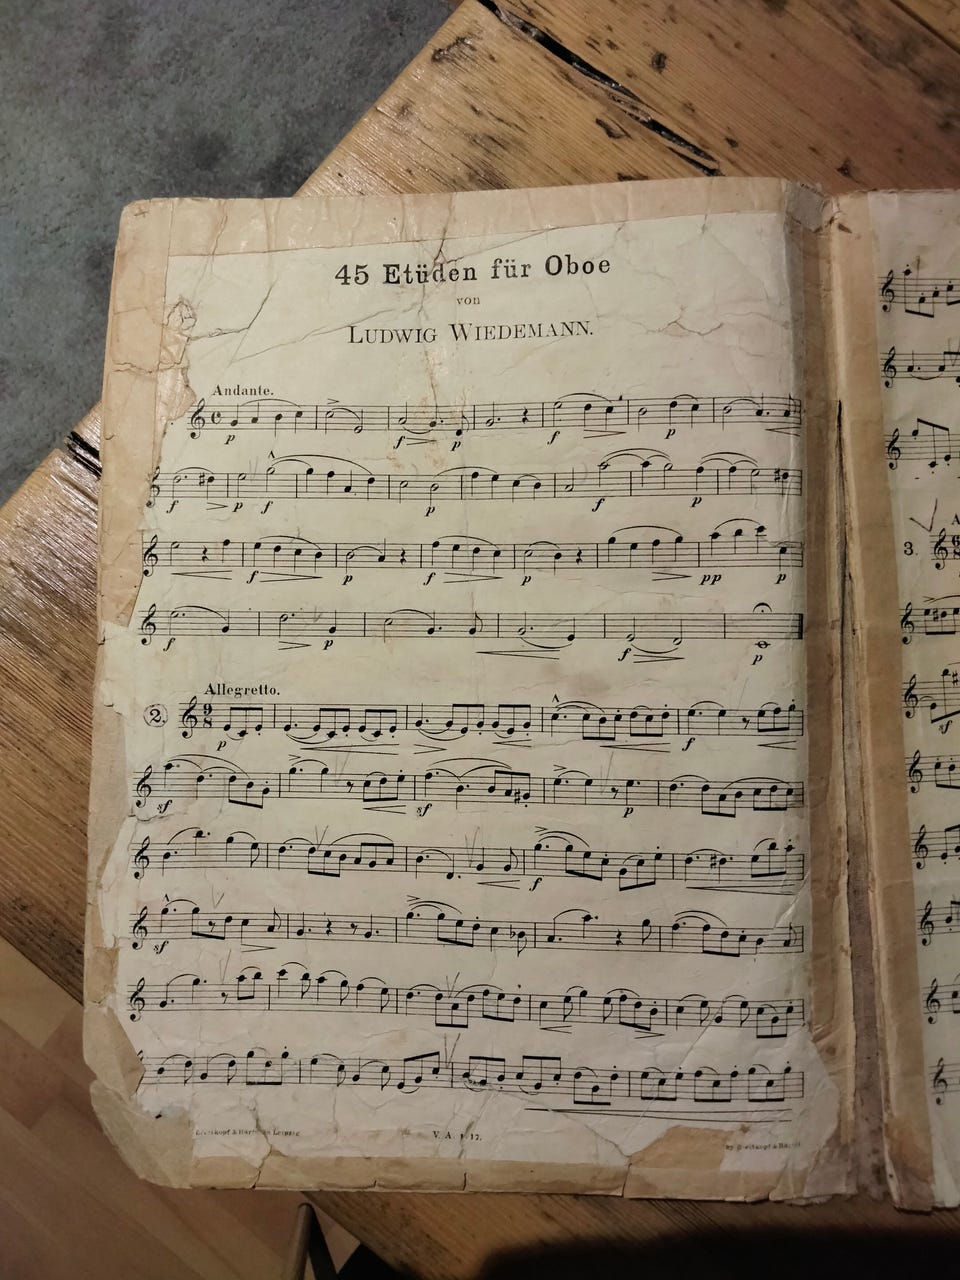 45 Etüden für Oboe
von
LUDWIG WIEDEMANN.
Andante.
p f p f p
f p f p f p
f p f p pp p
f p f p
Allegretto.
2.
p f
sf sf p
f
sf
Breitkopf & Härtel in Leipzig
V. A.
by Breitkopf & Härtel
3.
sf